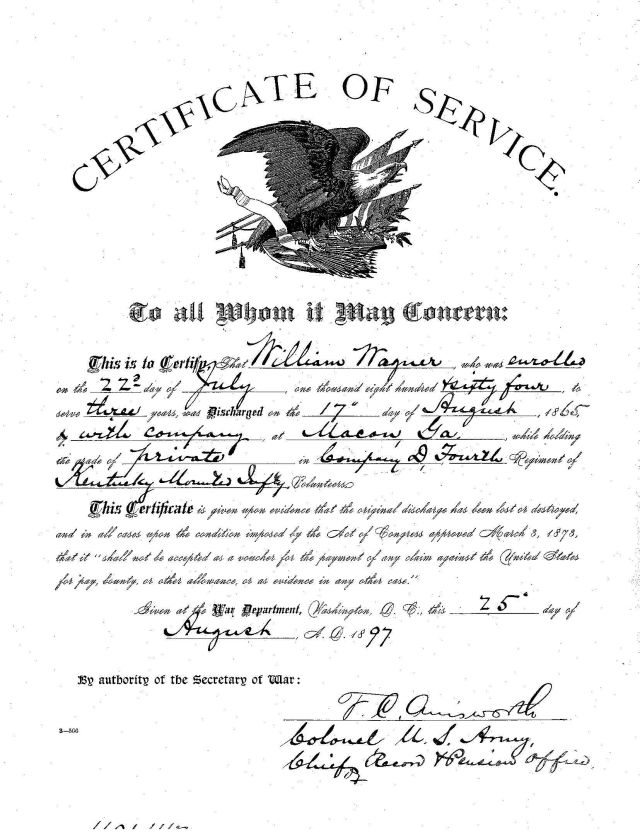 CERTIFICATE OF SERVICE.
To all Whom it May Concern:
This is to Certify, That William Wagner, who was enrolled
on the 22d day of July, one thousand eight hundred & sixty four, to
serve three years, was Discharged on the 17" day of August, 1865,
by with company, at Macon, Ga., while holding
the grade of private in Company D, Fourth Regiment of
Kentucky Mounted Infty Volunteers
This Certificate is given upon evidence that the original discharge has been lost or destroyed,
and in all cases upon the condition imposed by the Act of Congress approved March 3, 1873,
that it "shall not be accepted as a voucher for the payment of any claim against the United States
for pay, bounty, or other allowance, or as evidence in any other case."
Given at the War Department, Washington, D. C., this 25" day of
August, A. D. 1897
By authority of the Secretary of War:
F. C. Ainsworth
3—566
Colonel U. S. Army,
Chief, Record & Pension Office.